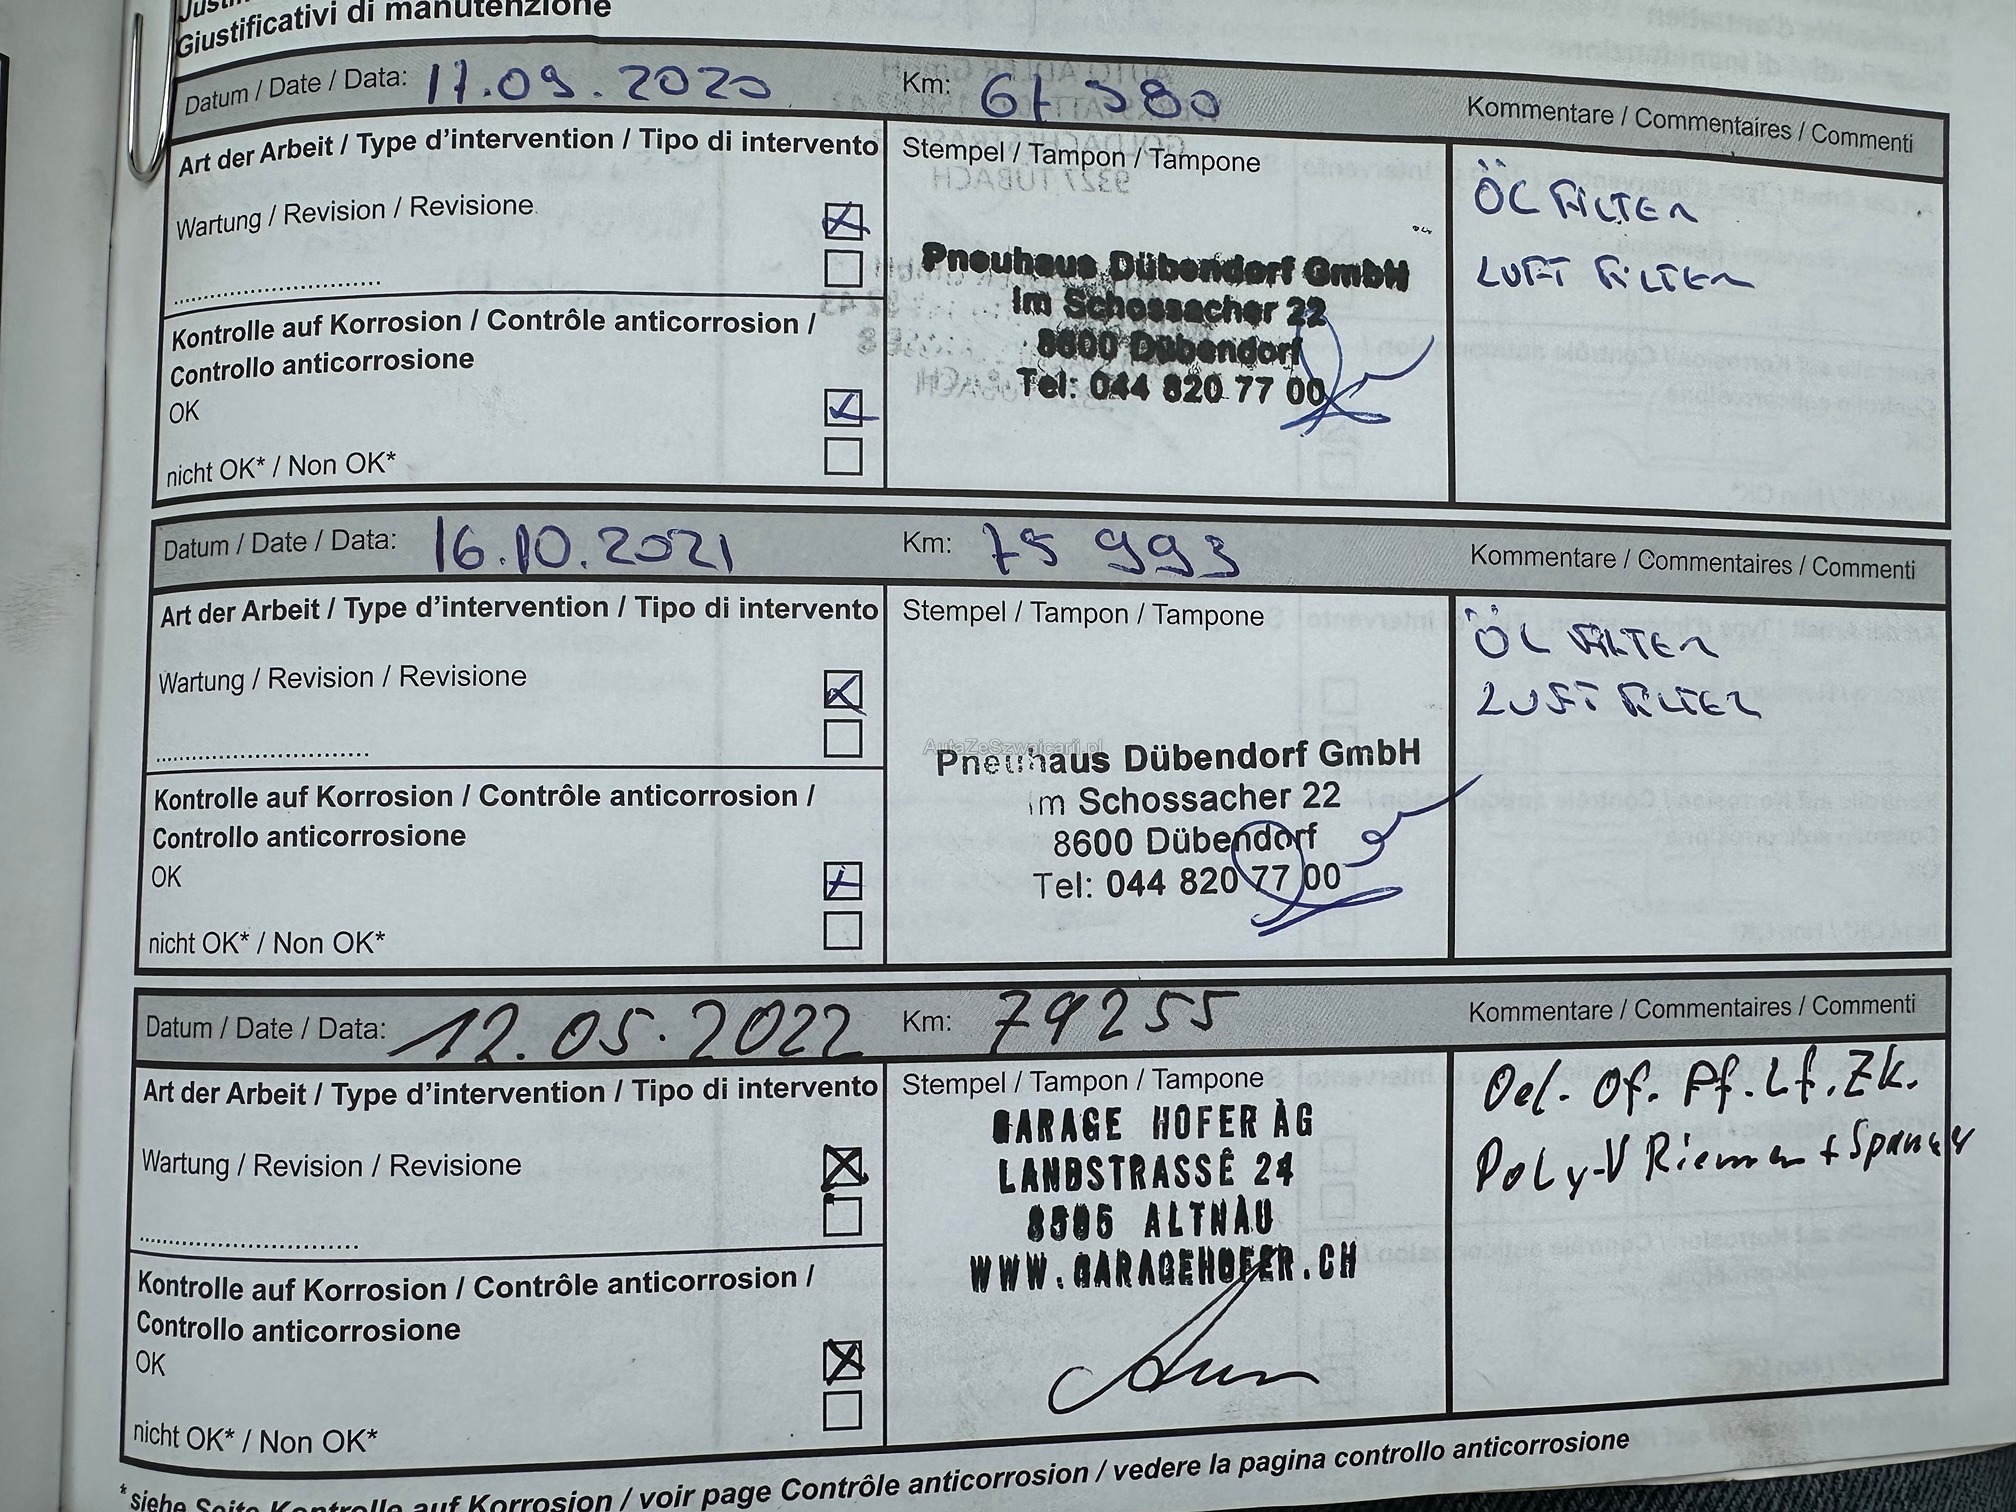 Giustificativi di manutenzione
Datum / Date / Data: 17.09.2020 Km: 61 580 Kommentare / Commentaires / Commenti
Art der Arbeit / Type d'intervention / Tipo di intervento
Stempel / Tampon / Tampone
ÖL FILTER
LUFT FILTER
Wartung / Revision / Revisione
Pneuhaus Dübendorf GmbH
Im Schossacher 22
8600 Dübendorf
Tel: 044 820 77 00
Kontrolle auf Korrosion / Contrôle anticorrosion /
Controllo anticorrosione
OK
nicht OK* / Non OK*
Datum / Date / Data: 16.10.2021 Km: 75 993 Kommentare / Commentaires / Commenti
Art der Arbeit / Type d'intervention / Tipo di intervento
Stempel / Tampon / Tampone
ÖL FILTER
LUFT FILTER
Wartung / Revision / Revisione
AutaZeSzwajcarii.pl
Pneuhaus Dübendorf GmbH
im Schossacher 22
8600 Dübendorf
Tel: 044 820 77 00
Kontrolle auf Korrosion / Contrôle anticorrosion /
Controllo anticorrosione
OK
nicht OK* / Non OK*
Datum / Date / Data: 12.05.2022 Km: 79255 Kommentare / Commentaires / Commenti
Art der Arbeit / Type d'intervention / Tipo di intervento
Stempel / Tampon / Tampone
Oel. Of. Pf. Lf. Zk.
Poly-V Riemen + Spanner
Wartung / Revision / Revisione
GARAGE HOFER AG
LANDSTRASSE 24
8595 ALTNAU
WWW.GARAGEHOFER.CH
Kontrolle auf Korrosion / Contrôle anticorrosion /
Controllo anticorrosione
OK
nicht OK* / Non OK*
*siehe Seite Kontrolle auf Korrosion / voir page Contrôle anticorrosion / vedere la pagina controllo anticorrosione